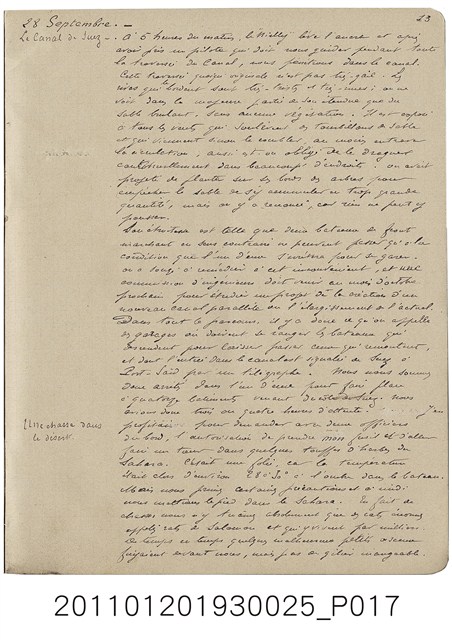 23
28 Septembre. —
Le Canal de Suez —
À 5 heures du matin, le Nielly lève l'ancre et après
avoir pris un pilote qui doit nous guider pendant toute
la traversée du Canal, nous pénétrons dans le canal.
Cette traversée quoique n'est pas très gaie. Les
rives qui bordent sont très tristes et très nues: on ne
voit dans la majeure partie de son étendue que du
sable brûlant, sans aucune végétation. Il est exposé
à tous les vents qui soulèvent des tourbillons de sable
et qui viennent sinon le combler, au moins entraver
la circulation, aussi est-on obligé de le draguer
continuellement dans beaucoup d'endroits. on avait
projeté de planter sur les bords des arbres pour
empêcher le sable de s'y accumuler en trop grande
quantité, mais on y a renoncé, car rien ne peut y
pousser.
Son étroitesse est telle que deux bateaux de front
marchant en sens contraire ne peuvent passer qu'à la
condition que l'un d'eux s'arrête pour se garer.
on a songé à remédier à cet inconvénient, et une
commission d'ingénieurs doit venir au mois d'octobre
prochain pour étudier un projet de la création d'un
nouveau canal parallèle ou l'élargissement de l'actuel.
Dans tout le parcours, il y a donc ce qu'on appelle
des garages où doivent se ranger les bateaux qui
descendent pour laisser passer ceux qui remontent,
et dont l'entrée dans le canal est signalée de Suez à
Port-Saïd par un télégraphe. Nous nous sommes
donc arrêtés dans l'un d'eux pour faire place
à quatorze bâtiments venant de Suez. Nous
avions donc trois ou quatre heures d'attente. J'en
Une chasse dans
le désert.
profitai pour demander avec deux officiers
du bord, l'autorisation de prendre mon fusil et d'aller
faire un tour dans quelques touffes d'herbes du
Sahara. C'était une folie, car la température
était alors d'environ 28 à 30° à l'ombre dans le bateau.
Mais nous prîmes certaines précautions et à midi
nous mettions le pied dans le Sahara. En fait de
chasse, nous n'y trouvâmes absolument que des rats
appelés rats de Salomon et qui y vivent par milliers.
De temps en temps quelques malheureux petits oiseaux
fuyaient devant nous, mais pas de gibier mangeable.
201101201930025_P017